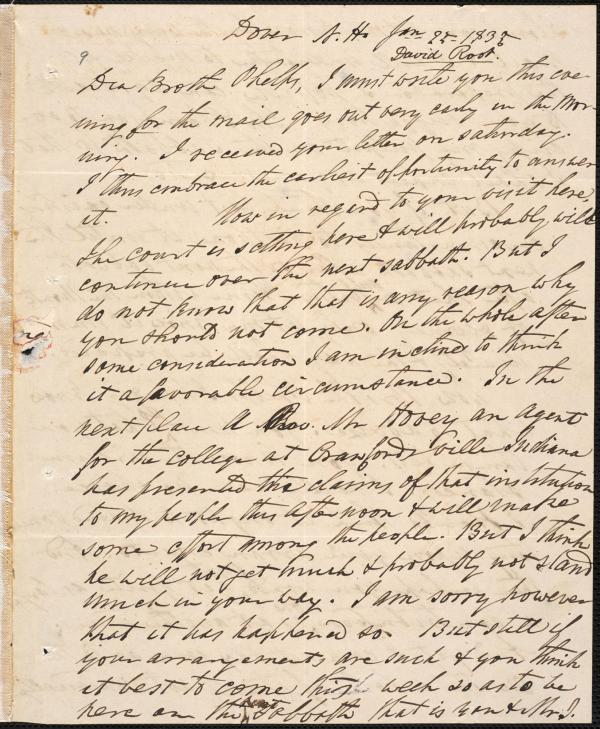 Dover N. H. Jan 22 1837
David Root.
9
Dea Broth Phelps, I must write you this eve-
ning for the mail goes out very early in the mor-
ning. I received your letter on saturday.
I thus embrace the earliest opportunity to answer
it. Now in regard to your visit here,
The court is setting here & will probably, will
continue over the next sabbath. But I
do not know that that is any reason why
you should not come. On the whole after
some consideration I am inclined to think
it a favorable circumstance. In the
next place A Rev. Mr Hovey an Agent
for the college at Crawfordsville Indiana
has presented the claims of that institution
to my people this afternoon & will make
some effort among the people. But I think
he will not get much & probably not stand
much in your way. I am sorry however
that it has happened so. But still if
your arrangements are such & you think
it best to come this week so as to be
here on the next Sabbath that is you & Mr J.